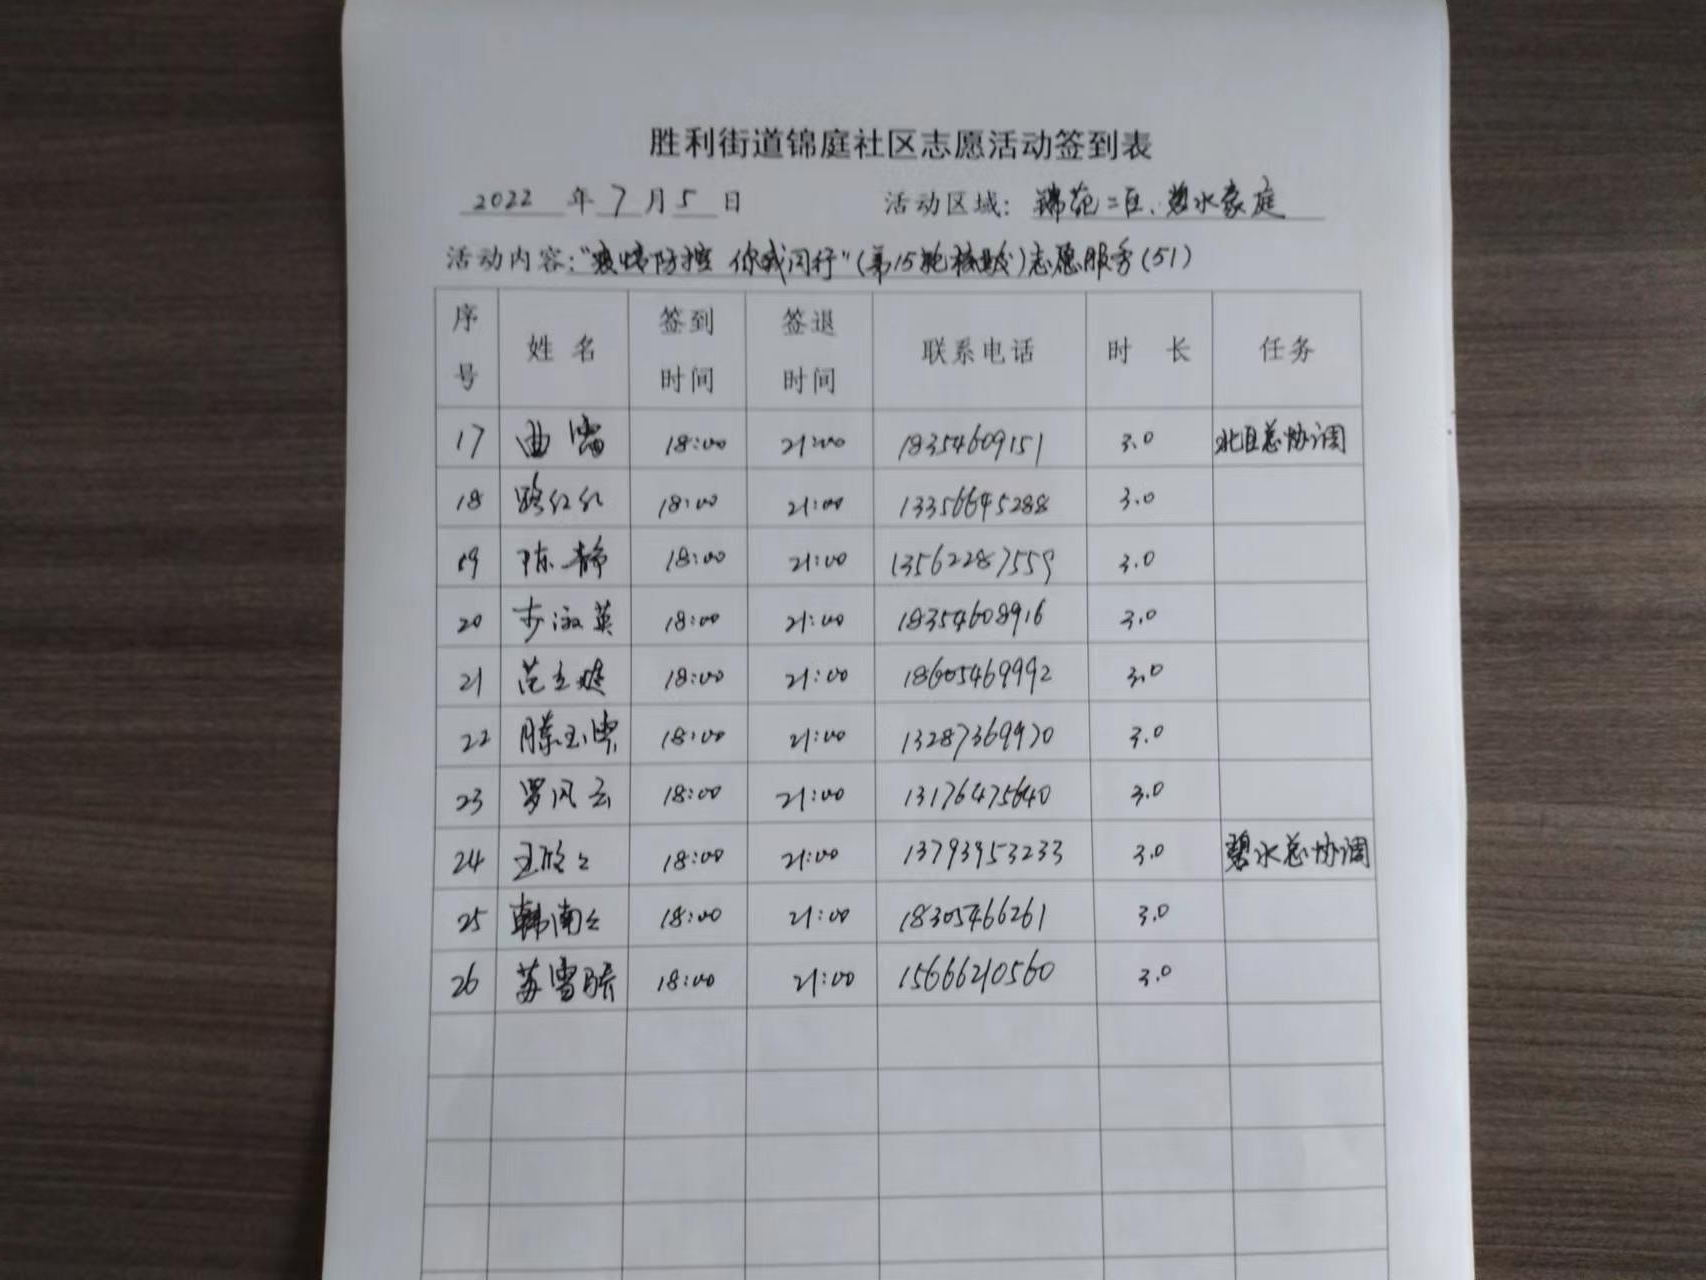 胜利街道锦庭社区志愿活动签到表
2022 年 7 月 5 日 活动区域：锦苑二区、碧水家庭
活动内容："疫情防控 你我同行"（第15轮核酸）志愿服务（51）
序号 姓名 签到时间 签退时间 联系电话 时长 任务
17 曲 18:00 21:00 18354609151 3.0 北区总协调
18 路红红 18:00 21:00 13356645288 3.0
19 陈静 18:00 21:00 13562287559 3.0
20 步淑英 18:00 21:00 18354608916 3.0
21 范立婕 18:00 21:00 18605469992 3.0
22 滕玉雪 18:00 21:00 13287369970 3.0
23 罗风云 18:00 21:00 13176475640 3.0
24 王 18:00 21:00 13793953233 3.0 碧水总协调
25 韩南南 18:00 21:00 18305466261 3.0
26 苏雪骄 18:00 21:00 15666210560 3.0